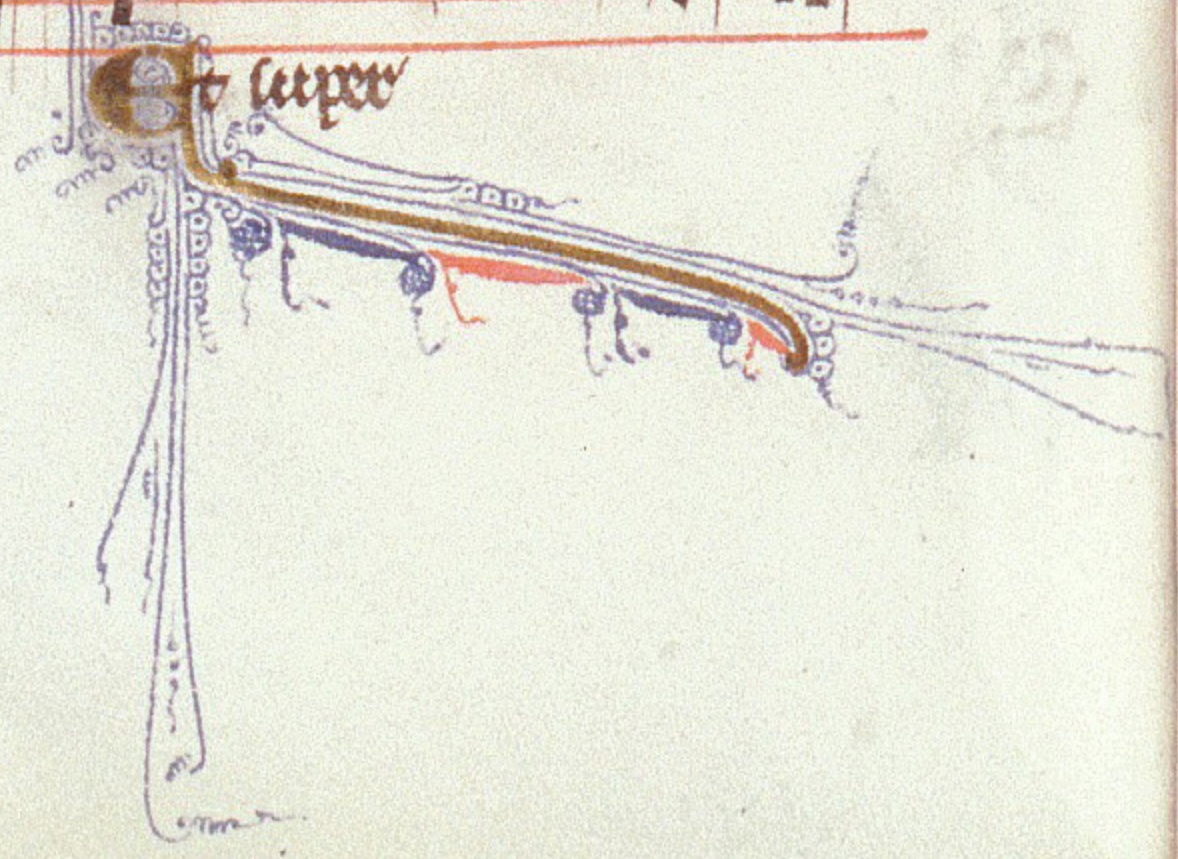 Et super